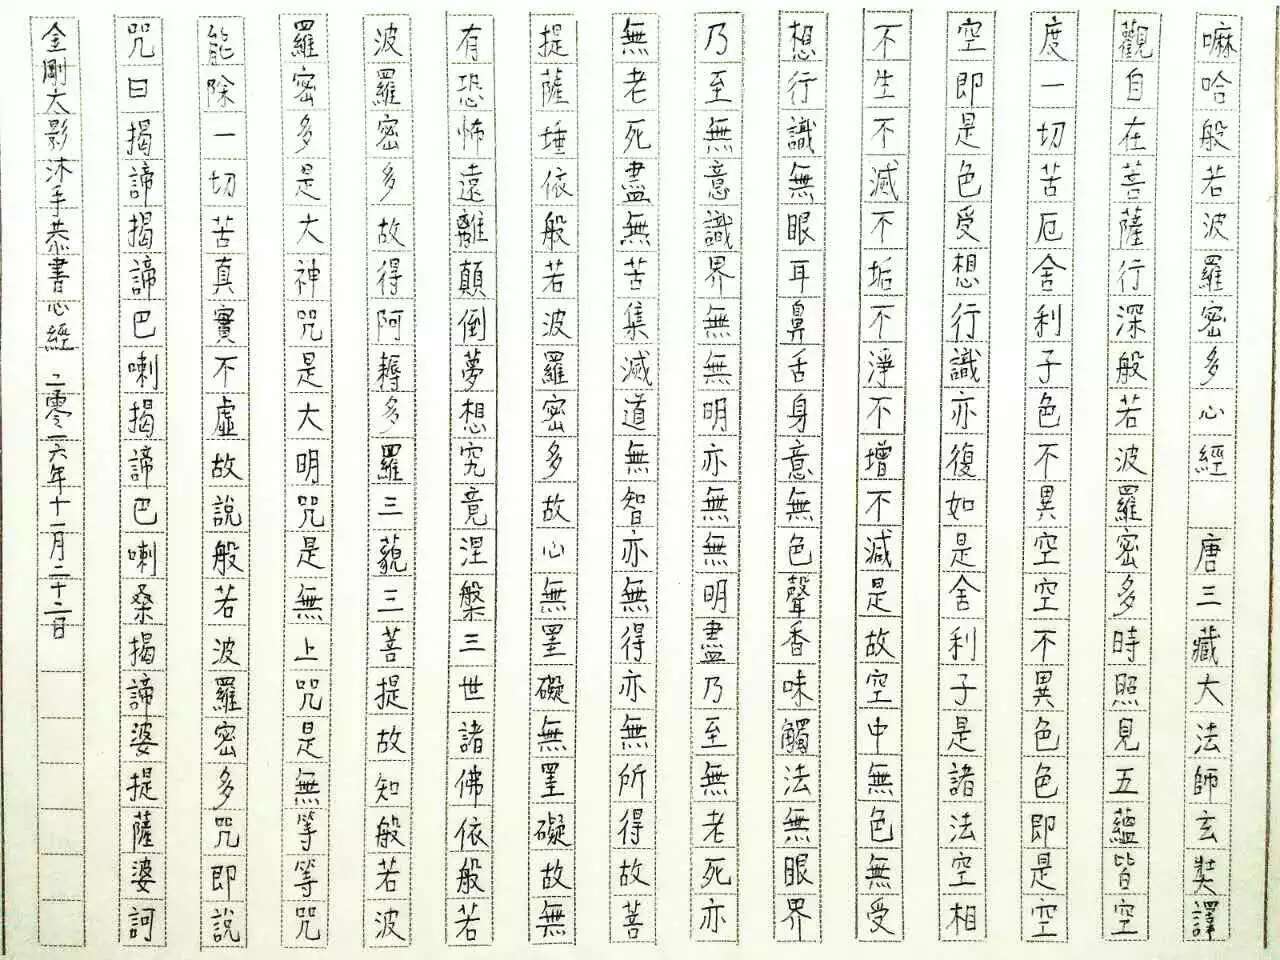 嘛哈般若波羅密多心經 唐三藏大法師玄奘譯
觀自在菩薩行深般若波羅密多時照見五蘊皆空
度一切苦厄舍利子色不異空空不異色色即是空
空即是色受想行識亦復如是舍利子是諸法空相
不生不滅不垢不淨不增不減是故空中無色無受
想行識無眼耳鼻舌身意無色聲香味觸法無眼界
乃至無意識界無無明亦無無明盡乃至無老死亦
無老死盡無苦集滅道無智亦無得亦無所得故菩
提薩埵依般若波羅密多故心無罣礙無罣礙故無
有恐怖遠離顛倒夢想究竟涅槃三世諸佛依般若
波羅密多故得阿耨多羅三藐三菩提故知般若波
羅密多是大神咒是大明咒是無上咒是無等等咒
能除一切苦真實不虛故說般若波羅密多咒即說
咒曰揭諦揭諦巴喇揭諦巴喇桑揭諦婆提薩婆訶
金剛太影沐手恭書心經 二零一六年十一月二十二日